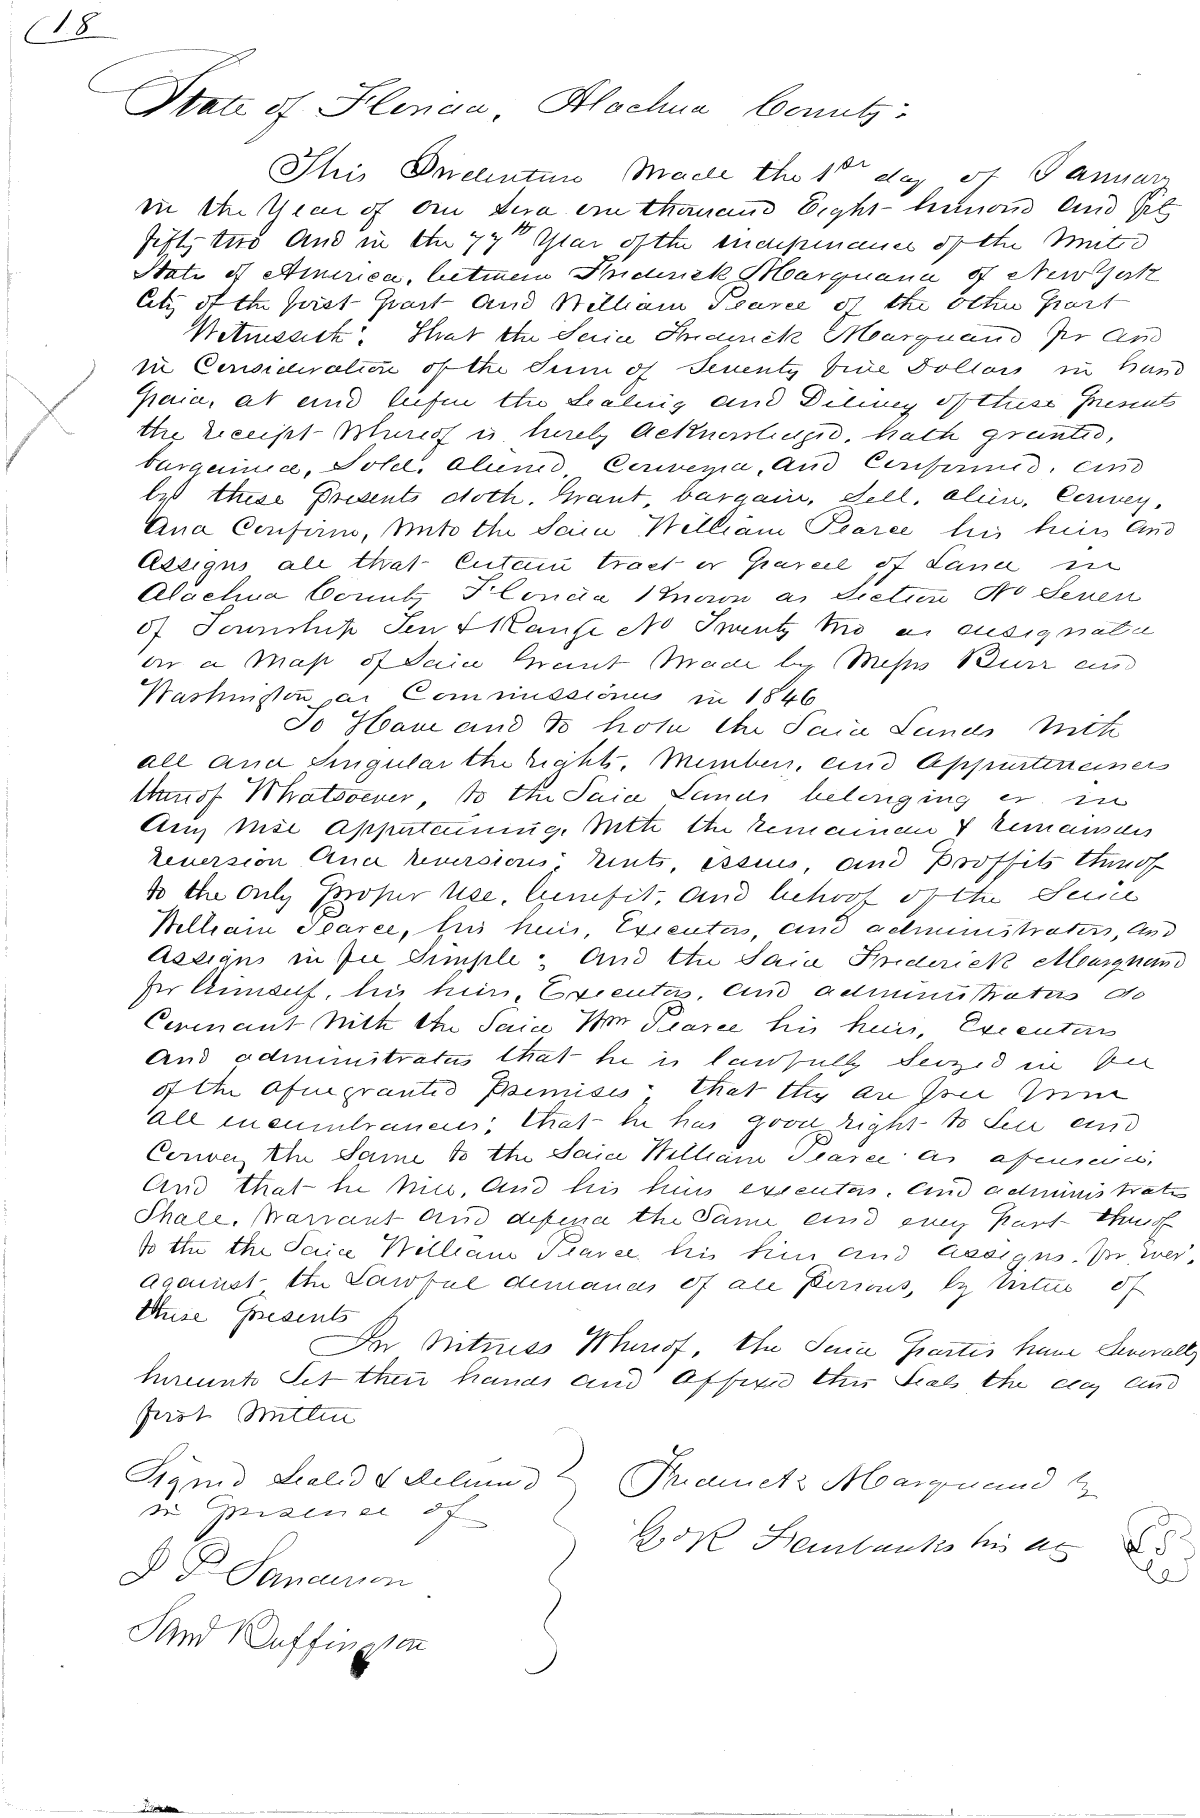 18
State of Florida, Alachua County:
This Indenture Made the 1st day of January
in the Year of our Sera one thousand Eight hundred and fifty
fifty two And in the 77th Year of the independance of the United
State of America, between Frederick Marquand of New York
City of the first part and William Pearce of the other part
Witnesseth: That the Said Frederick Marquand for and
in Consideration of the Sum of Seventy five Dollars in hand
paid, at and before the Sealing and Delivery of these presents
the receipt Whereof is hereby Acknowledged, hath granted,
bargained, Sold, aliened, Conveyed, and Confirmed, and
by these presents doth, Grant, bargain, Sell, alien, Convey,
And Confirm, unto the Said William Pearce his heirs and
Assigns all that Certain tract or parcel of Land in
Alachua County Florida Known as Section No Seven
of Township Ten & Range No Twenty two as designated
on a Map of Said Grant Made by Messrs Burr and
Washington as Commissioners in 1846
To Have and to hold the Said Lands With
all and Singular the rights, Members, and Appurtenances
thereof Whatsoever, to the Said Lands belonging or in
Any Wise Appertaining, With the remainder & remainders
reversion And reversions; rents, issues, and proffits thereof
to the only proper use, benefit, and behoof of the Said
William Pearce, his heirs, Executors, and administrators, and
Assigns in fee Simple; And the Said Frederick Marquand
for himself, his heirs, Executors, and administrators do
Covenant With the Said Wm Pearce his heirs, Executors
And administrators that he is lawfully Seized in fee
of the aforegranted premises; that they are free from
all encumbrances; that he has good right to Sell and
Convey the Same to the Said William Pearce as aforesaid,
And that he Will, and his heirs executors, and administrators
Shall, Warrant and defend the Same and every part thereof
to the the Said William Pearce his heirs and assigns for ever,
against the Lawful demands of all persons, by virtue of
these presents
In Witness Whereof, the Said parties have Severally
hereunto Set their hands and affixed their Seals the day and
first Written
Signed Sealed & delivered
in presence of
J P Sanderson
Saml Buffington
Frederick Marquand by
G R Fairbanks his atty
LS